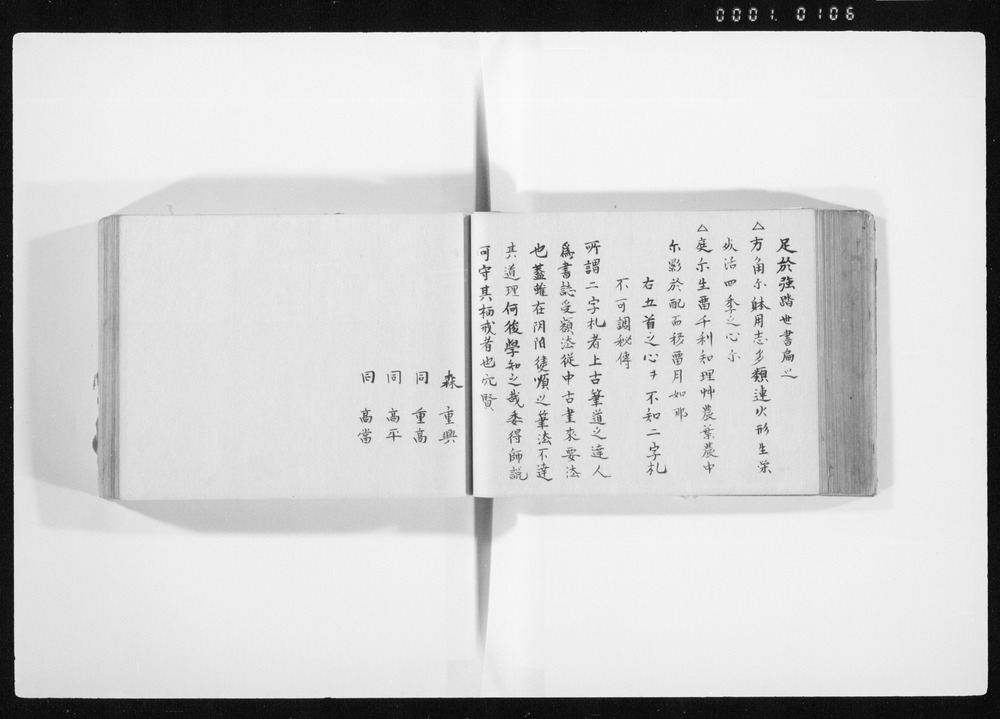 0001.0106
足於強踏世書扁之
△方角尓躰用志多類連火形生栄
成活四季之心尓
△庭尓生留千利知理艸農葉農中
尓影於配而移留月如那
右五首之心ヲ不知二字札
不可調秘傳
所謂二字札者上古筆道之達人
為書誌受額法従中古書來要法
也蓋雖在阴阳徒順之筆法不達
其道理何後學知之哉委得師説
可守其柄戒者也穴賢
森 重興
同 重高
同 高平
同 高當